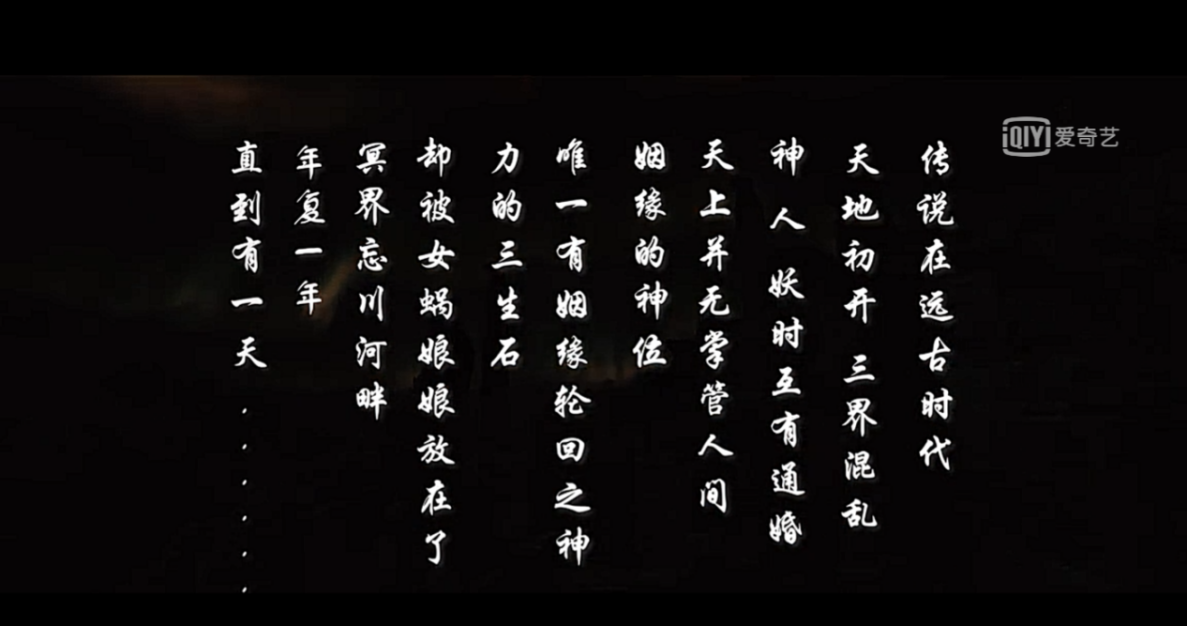 iQIYI 爱奇艺
传说在远古时代
天地初开 三界混乱
神 人 妖时互有通婚
天上并无掌管人间
姻缘的神位
唯一有姻缘轮回之神
力的三生石
却被女娲娘娘放在了
冥界忘川河畔
年复一年
直到有一天......